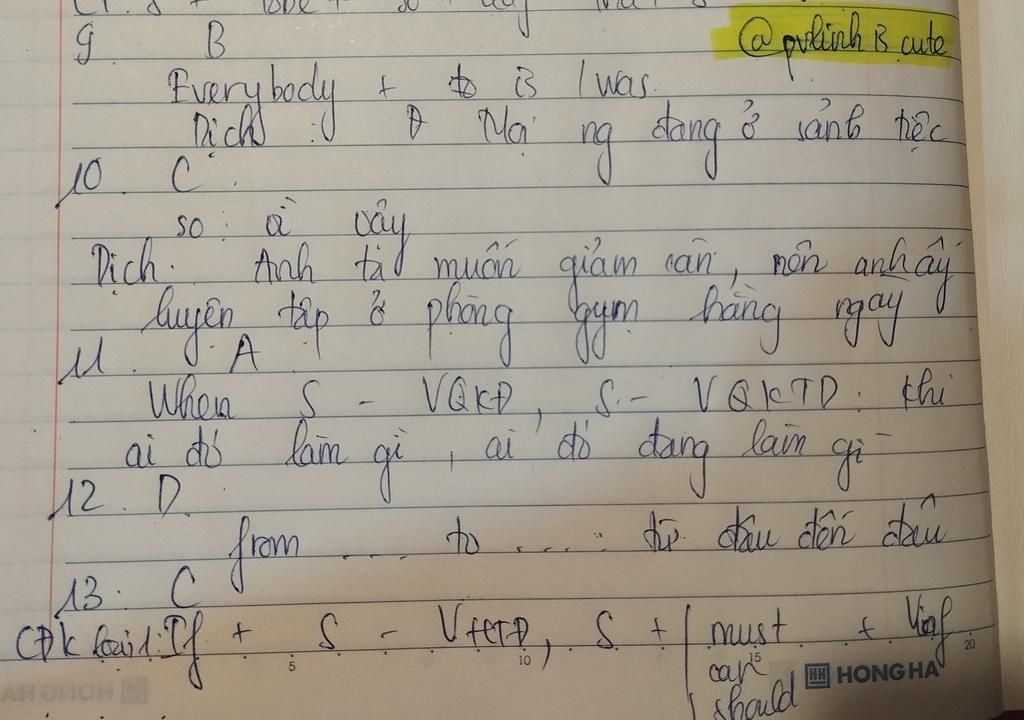 9 B
@pvlinh B cute
Everybody + to B / was.
Dịch : Mọi ng đang ở sảnh tiệc
10. C.
so : vì vậy
Dịch. Anh ta muốn giảm cân, nên anh ấy
luyện tập ở phòng gym hằng ngày
11. A
When S - VQKĐ, S - VQKTD : khi
ai đó làm gì, ai đó đang làm gì
12. D.
from .... to .... : từ đâu đến đâu
13. C
CĐK loại 1: If + S - VHTĐ, S + must + Vinf
can
should
5 10 15 20
HONG HA